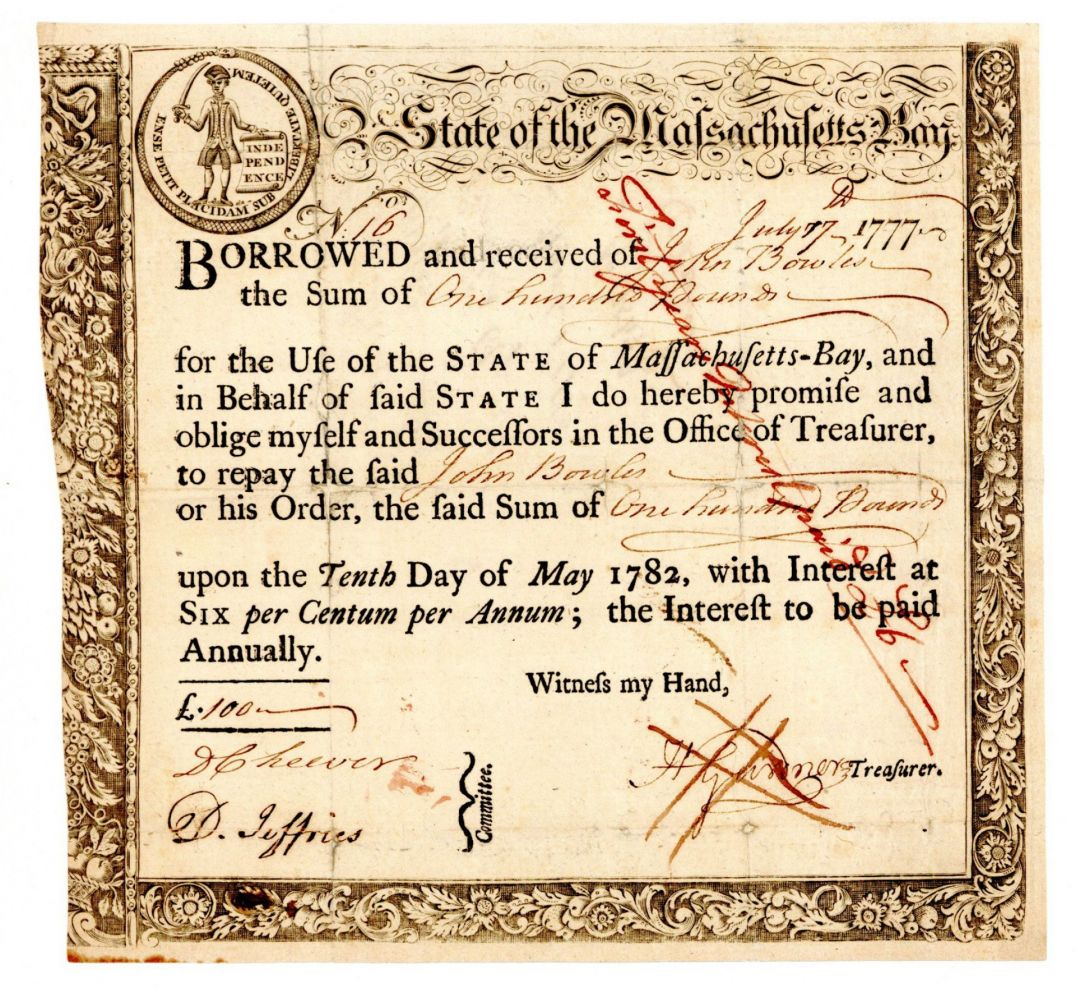 ENSE PETIT PLACIDAM SUB LIBERTATE QUIETEM
INDE
PEND
ENCE
State of the Maſsachuſetts-Bay.
No. 16
July 17th 1777
BORROWED and received of John Bowles
the Sum of One hundred Pounds
for the Uſe of the STATE of Maſſachuſetts-Bay, and
in Behalf of ſaid STATE I do hereby promiſe and
oblige myſelf and Succeſſors in the Office of Treaſurer,
to repay the ſaid John Bowles
or his Order, the ſaid Sum of One hundred Pounds
upon the Tenth Day of May 1782, with Intereſt at
SIX per Centum per Annum; the Intereſt to be paid
Annually.
Witneſs my Hand,
£.100
D Cheever
D. Jeffries
Committee.
H Gardner Treaſurer.
First Year Interest paid